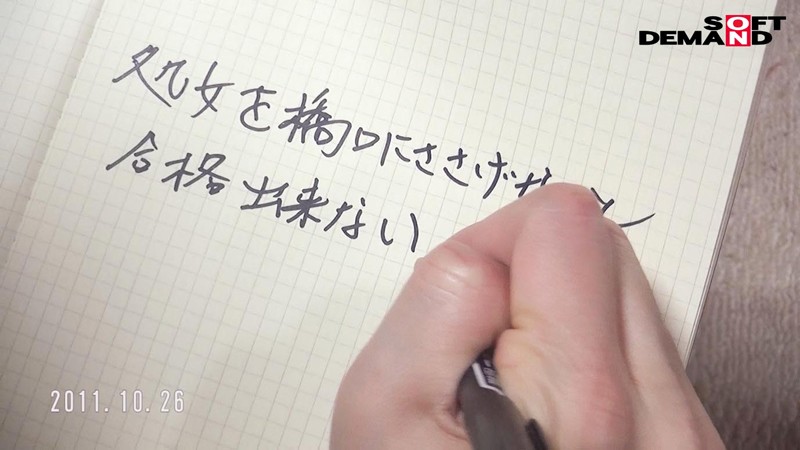 SOFT
DEMAND
処女を橋口にささげないと
合格出来ない
2011.10.26